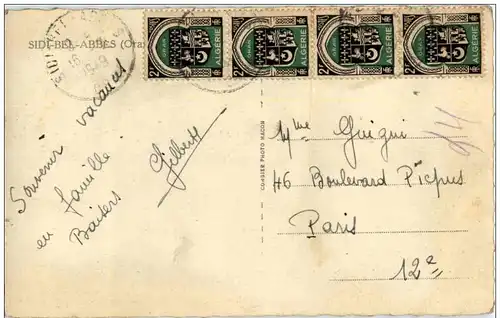 SIDI-BEL-ABBÈS (Oran)
SIDI BEL ABBES
16
1949
2F ALGERIE
2F ALGERIE
2F ALGERIE
2F ALGERIE
Souvenir vacances
en famille
Baisers Gilbert
COMBIER PHOTO MACON
Mme Guigui
46 Boulevard Picpus
Paris
12e